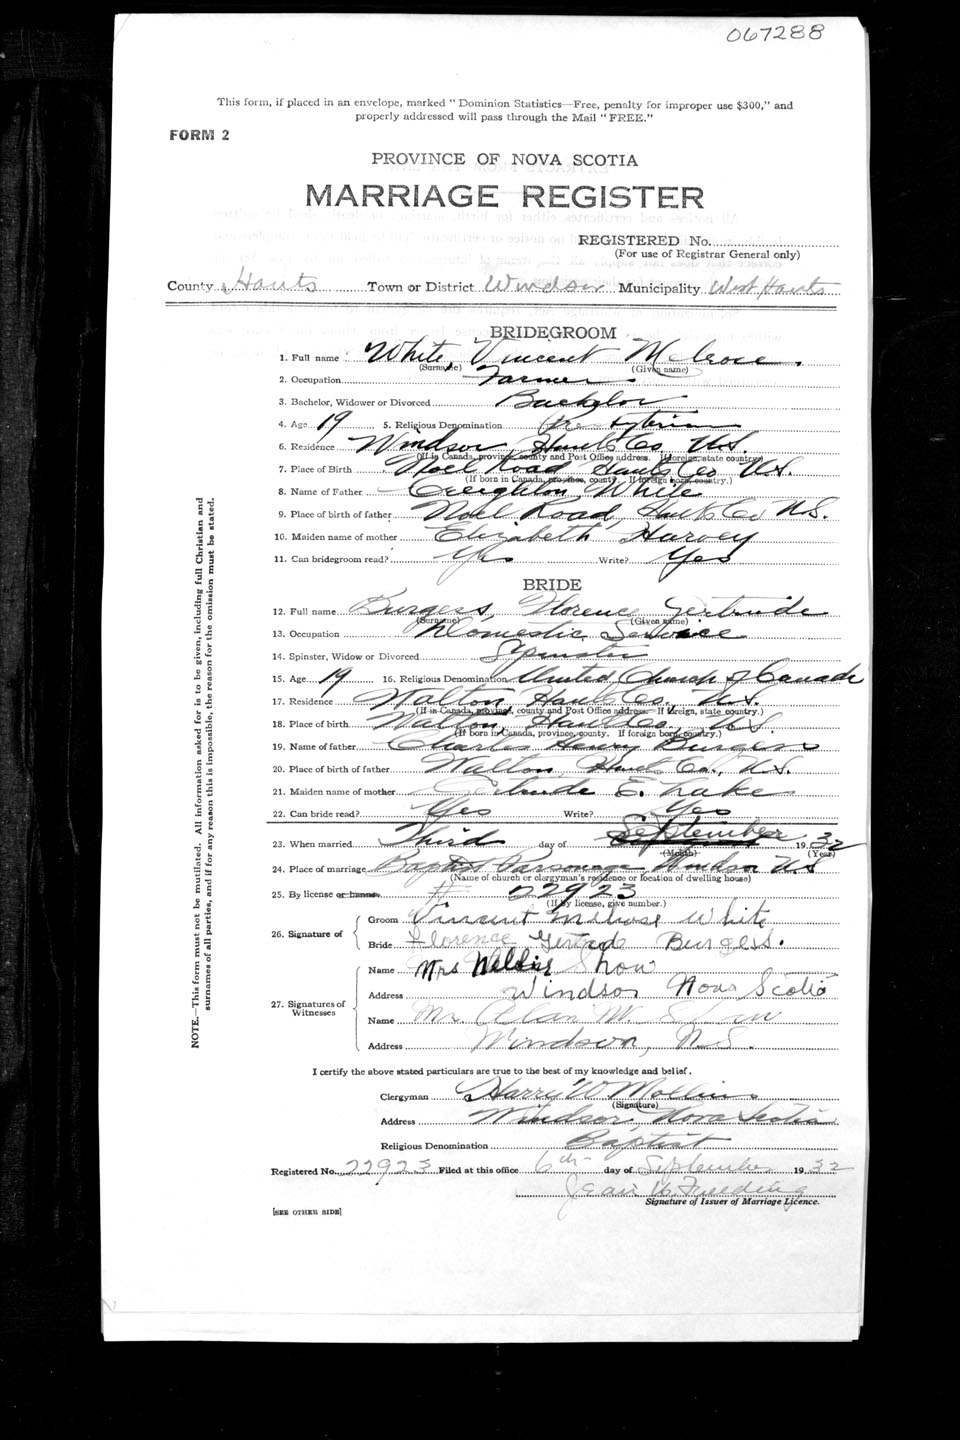 067288
This form, if placed in an envelope, marked "Dominion Statistics—Free, penalty for improper use $300," and
properly addressed will pass through the Mail "FREE."
FORM 2
PROVINCE OF NOVA SCOTIA
MARRIAGE REGISTER
REGISTERED No.
(For use of Registrar General only)
County Hants Town or District Windsor Municipality West Hants
BRIDEGROOM
1. Full name White, Vincent Melrose.
(Surname) (Given name)
2. Occupation Farmer
3. Bachelor, Widower or Divorced Bachelor
4. Age 19 5. Religious Denomination Presbyterian
6. Residence Windsor, Hants Co. N.S.
(If in Canada, province, county and Post Office address. If foreign, state country.)
7. Place of Birth Noel Road Hants Co N.S.
(If born in Canada, province, county. If foreign born, country.)
8. Name of Father Creighton White
9. Place of birth of father Noel Road, Hants Co N.S.
10. Maiden name of mother Elizabeth Harvey
11. Can bridegroom read? Yes Write? Yes
BRIDE
12. Full name Burgess, Florence Gertrude
(Surname) (Given name)
13. Occupation Domestic Service
14. Spinster, Widow or Divorced Spinster
15. Age 19 16. Religious Denomination United Church of Canada
17. Residence Walton, Hants Co., N.S.
(If in Canada, province, county and Post Office address. If foreign, state country.)
18. Place of birth Walton, Hants Co. N.S.
(If born in Canada, province, county. If foreign born, country.)
19. Name of father Charles Henry Burgess
20. Place of birth of father Walton, Hants Co., N.S.
21. Maiden name of mother Gertrude E. Lake
22. Can bride read? Yes Write? Yes
23. When married Third day of September 1932
(Month) (Year)
24. Place of marriage Baptist Parsonage Windsor N.S
(Name of church or clergyman's residence or location of dwelling house)
25. By license or banns # 22923
(If by license, give number.)
26. Signature of Groom Vincent Melrose White
Bride Florence Gertrude Burgess.
27. Signatures of Witnesses
Name Mrs Nellie Shaw
Address Windsor Nova Scotia
Name Mr. Alan W. Shaw
Address Windsor, N.S.
I certify the above stated particulars are true to the best of my knowledge and belief.
Clergyman Harry W Mollins
(Signature)
Address Windsor, Nova Scotia
Religious Denomination Baptist
Registered No. 22923 Filed at this office 6th day of September 1932
Jean
Signature of Issuer of Marriage Licence.
[SEE OTHER SIDE]
NOTE.—This form must not be mutilated. All information asked for is to be given, including full Christian and
surnames of all parties, and if for any reason this is impossible, the reason for the omission must be stated.